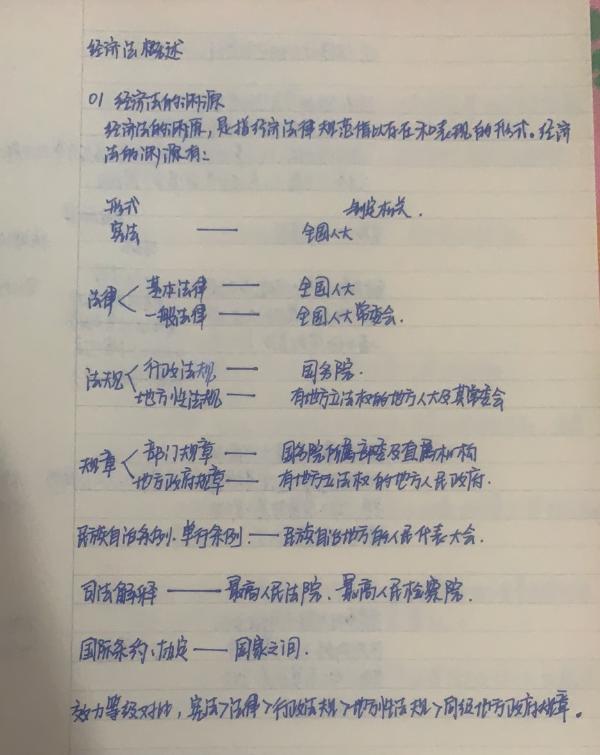 经济法概述
01 经济法的渊源
经济法的渊源，是指经济法律规范借以存在和表现的形式。经济
法的渊源有：
形式 制定机关.
宪法 —— 全国人大
法律< 基本法律 —— 全国人大
一般法律 —— 全国人大常委会.
法规< 行政法规 —— 国务院.
地方性法规 —— 有地方立法权的地方人大及其常委会
规章< 部门规章 —— 国务院所属部委及直属机构
地方政府规章 —— 有地方立法权的地方人民政府.
民族自治条例.单行条例. —— 民族自治地方的人民代表大会.
司法解释 —— 最高人民法院、最高人民检察院.
国际条约、协定 —— 国家之间.
效力等级对比，宪法>法律>行政法规>地方性法规>同级地方政府规章.